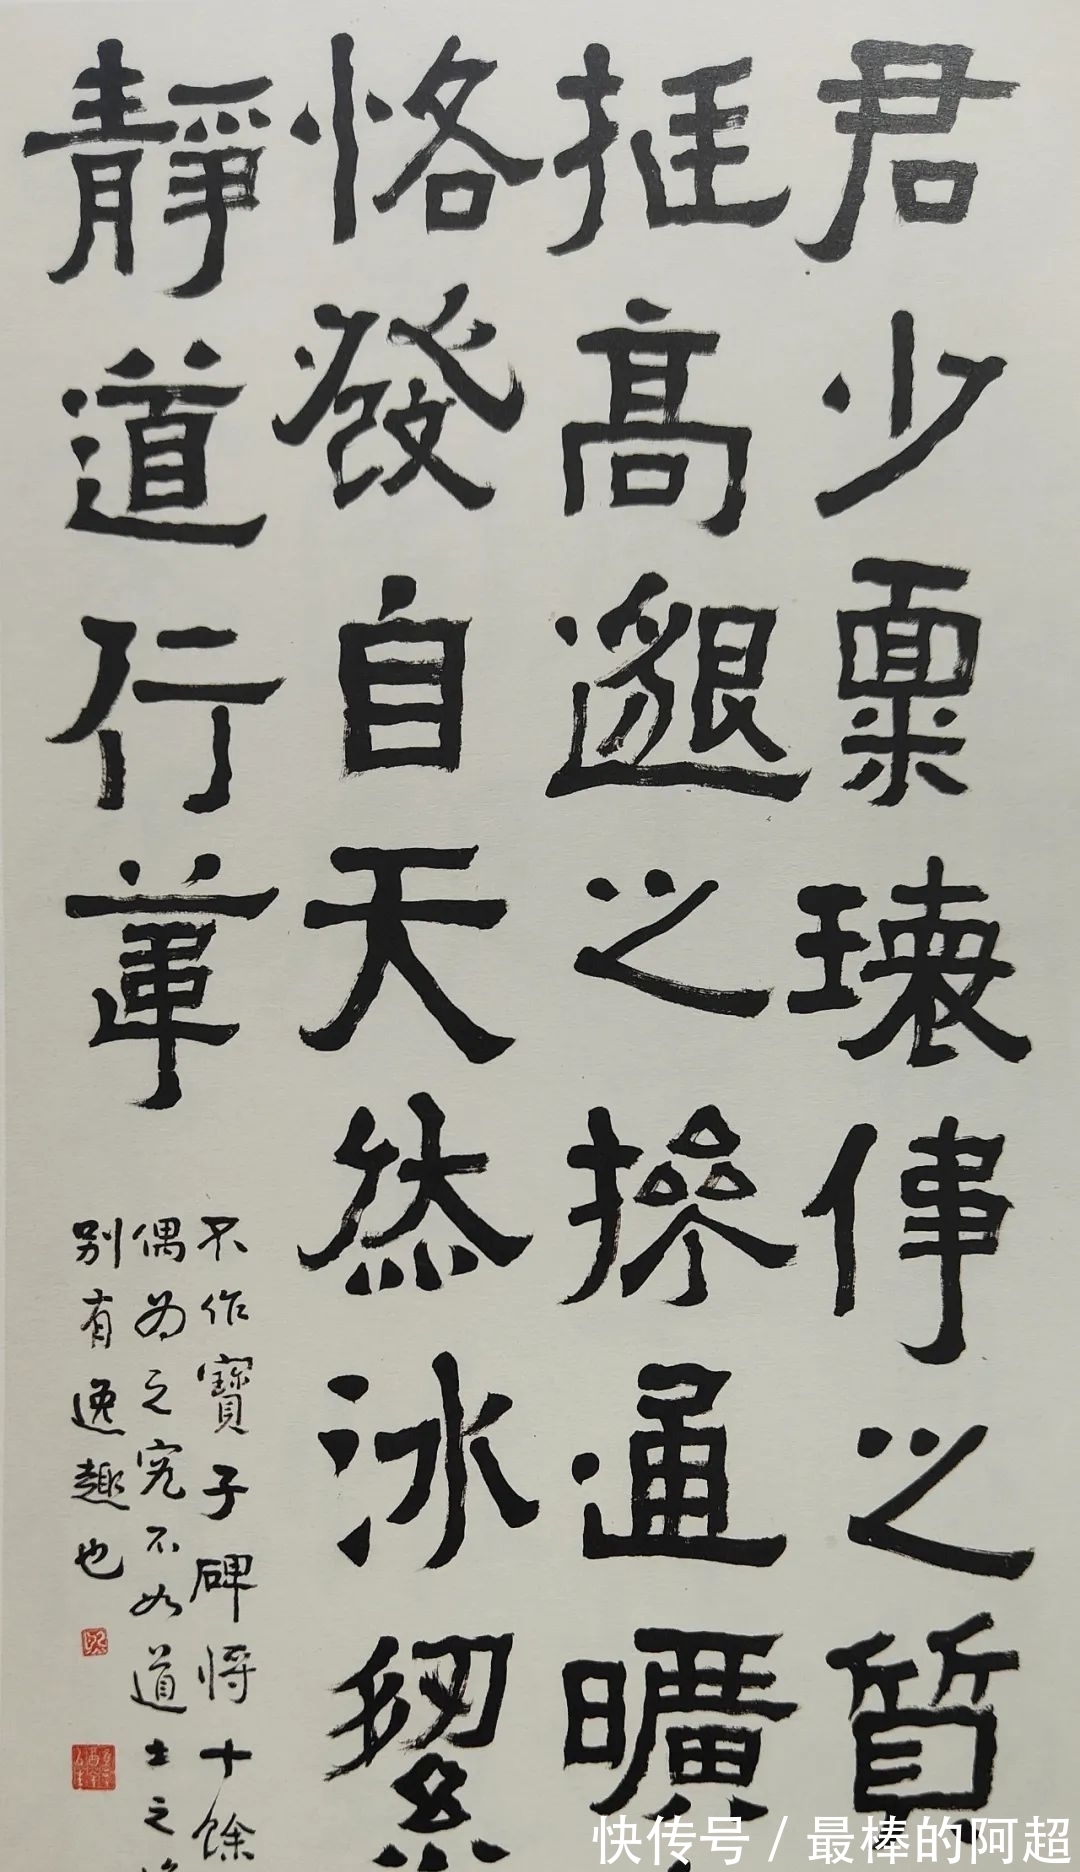 君少稟瓌偉之質
挺高邈之操通曠
恪發自天然冰絜
靜道行葦
不作寶子碑將十餘
偶為之究不如道士之
别有逸趣也
快传号 / 最棒的阿超